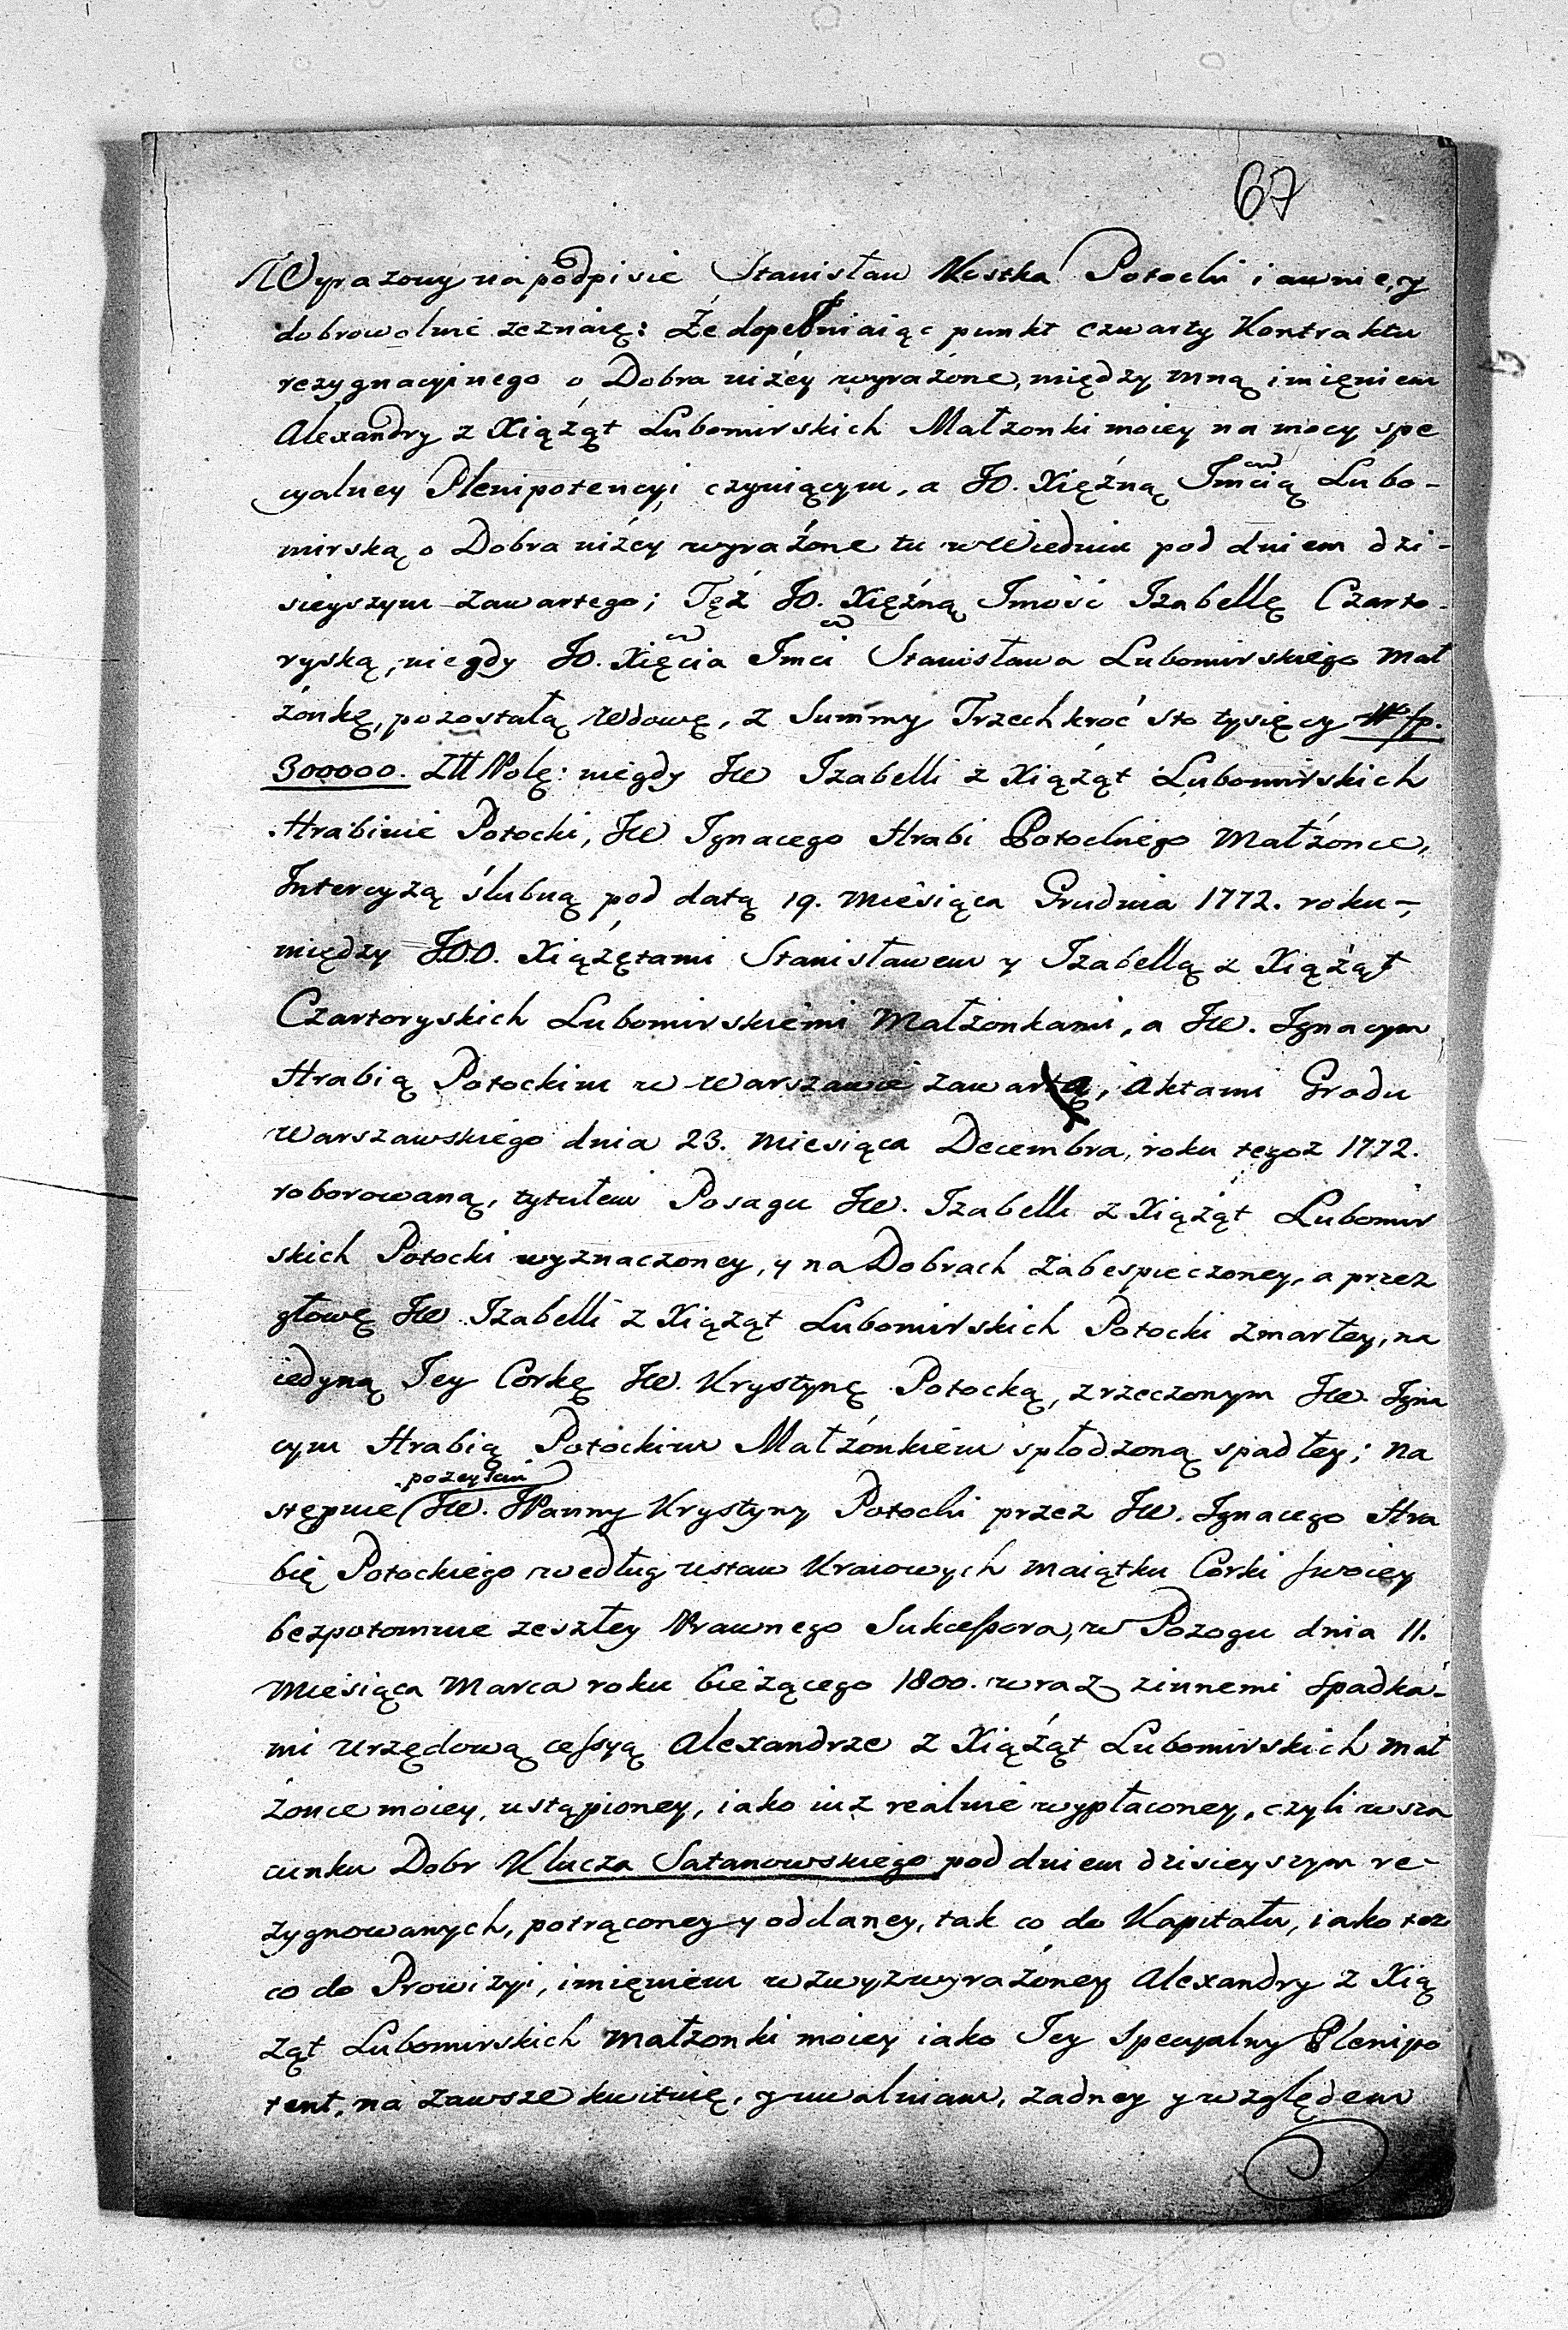 67
Wyrazony na podpisie Stanisław Kostka Potocki iawnie, y
dobrowolnie zeznaię: Że dopełniaiąc punkt czwarty Kontraktu
rezygnacyinego o Dobra niżey wyrażone, między mną imięniem
Alexandry z Xiążąt Lubomirskich Małzonki moiey na mocy spe
cyalney Plenipotencyi czyniącym, a JO. Xięźną Jmcią Lubo-
mirską o Dobra niżey wyrażone tu w Wiedniu pod dniem dzi-
sieyszym zawartego; Tęż JO. Xięźną Jmość Izabellę Czarto-
ryską, niegdy JO. Xięcia Jmci Stanisława Lubomirskiego Mał
żonkę, pozostałą Wdowę, z Summy Trzechkroć sto tysięcy
300000. Złł Polę: niegdy JW Izabelli z Xiążąt Lubomirskich
Hrabinie Potocki, JW Ignacego Hrabi Potockiego Małżonce,
Intercyzą ślubną pod datą 19. Miesiąca Grudnia 1772. roku-,
między JOO. Xiążętami Stanisławem y Izabellą z Xiążąt
Czartoryskich Lubomirskiemi Małzonkami, a JW. Ignacym
Hrabią Potockim w Warszawie zawartą, Aktami Grodu
Warszawskiego dnia 23. Miesiąca Decembra, roku tegoz 1772.
roborowaną, tytułem Posagu JW. Izabelli z Xiążąt Lubomir
skich Potocki wyznaczoney, y na Dobrach zabespieczoney, a przez
głowę JW Izabelli z Xiążąt Lubomirskich Potocki zmarłey, na
iedyną Jey Corkę JW. Krystynę Potocką, z rzeczonym JW. Igna
cym Hrabią Potockim Małżonkiem spłodzoną spadłey; na
stępnie JW. JPanny Krystyny Potocki przez JW. Ignacego Hra
bię Potockiego według ustaw Kraiowych maiątku Corki swoiey
bezpotomnie zeszłey Prawnego Sukcessora, w Pozogu dnia 11.
Miesiąca Marca roku bieżącego 1800. wraz z innemi Spadka-
mi Urzędową cessyą Alexandrze z Xiążąt Lubomirskich Mał
żonce moiey, ustąpioney, iako iuz realnie wypłaconey, czyli w sza
cunku Dobr Klucza Satanowskiego pod dniem dzisieyszym re-
zygnowanych, potrąconey y oddaney, tak co do Kapitału, iako tez
co do Prowizyi, imięniem wzwyzwyrażoney Alexandry z Xią
żąt Lubomirskich Małzonki moiey iako Jey Specyalny Plenipo
tent, na zawsze kwituię, y uwalniam, zadney y względem